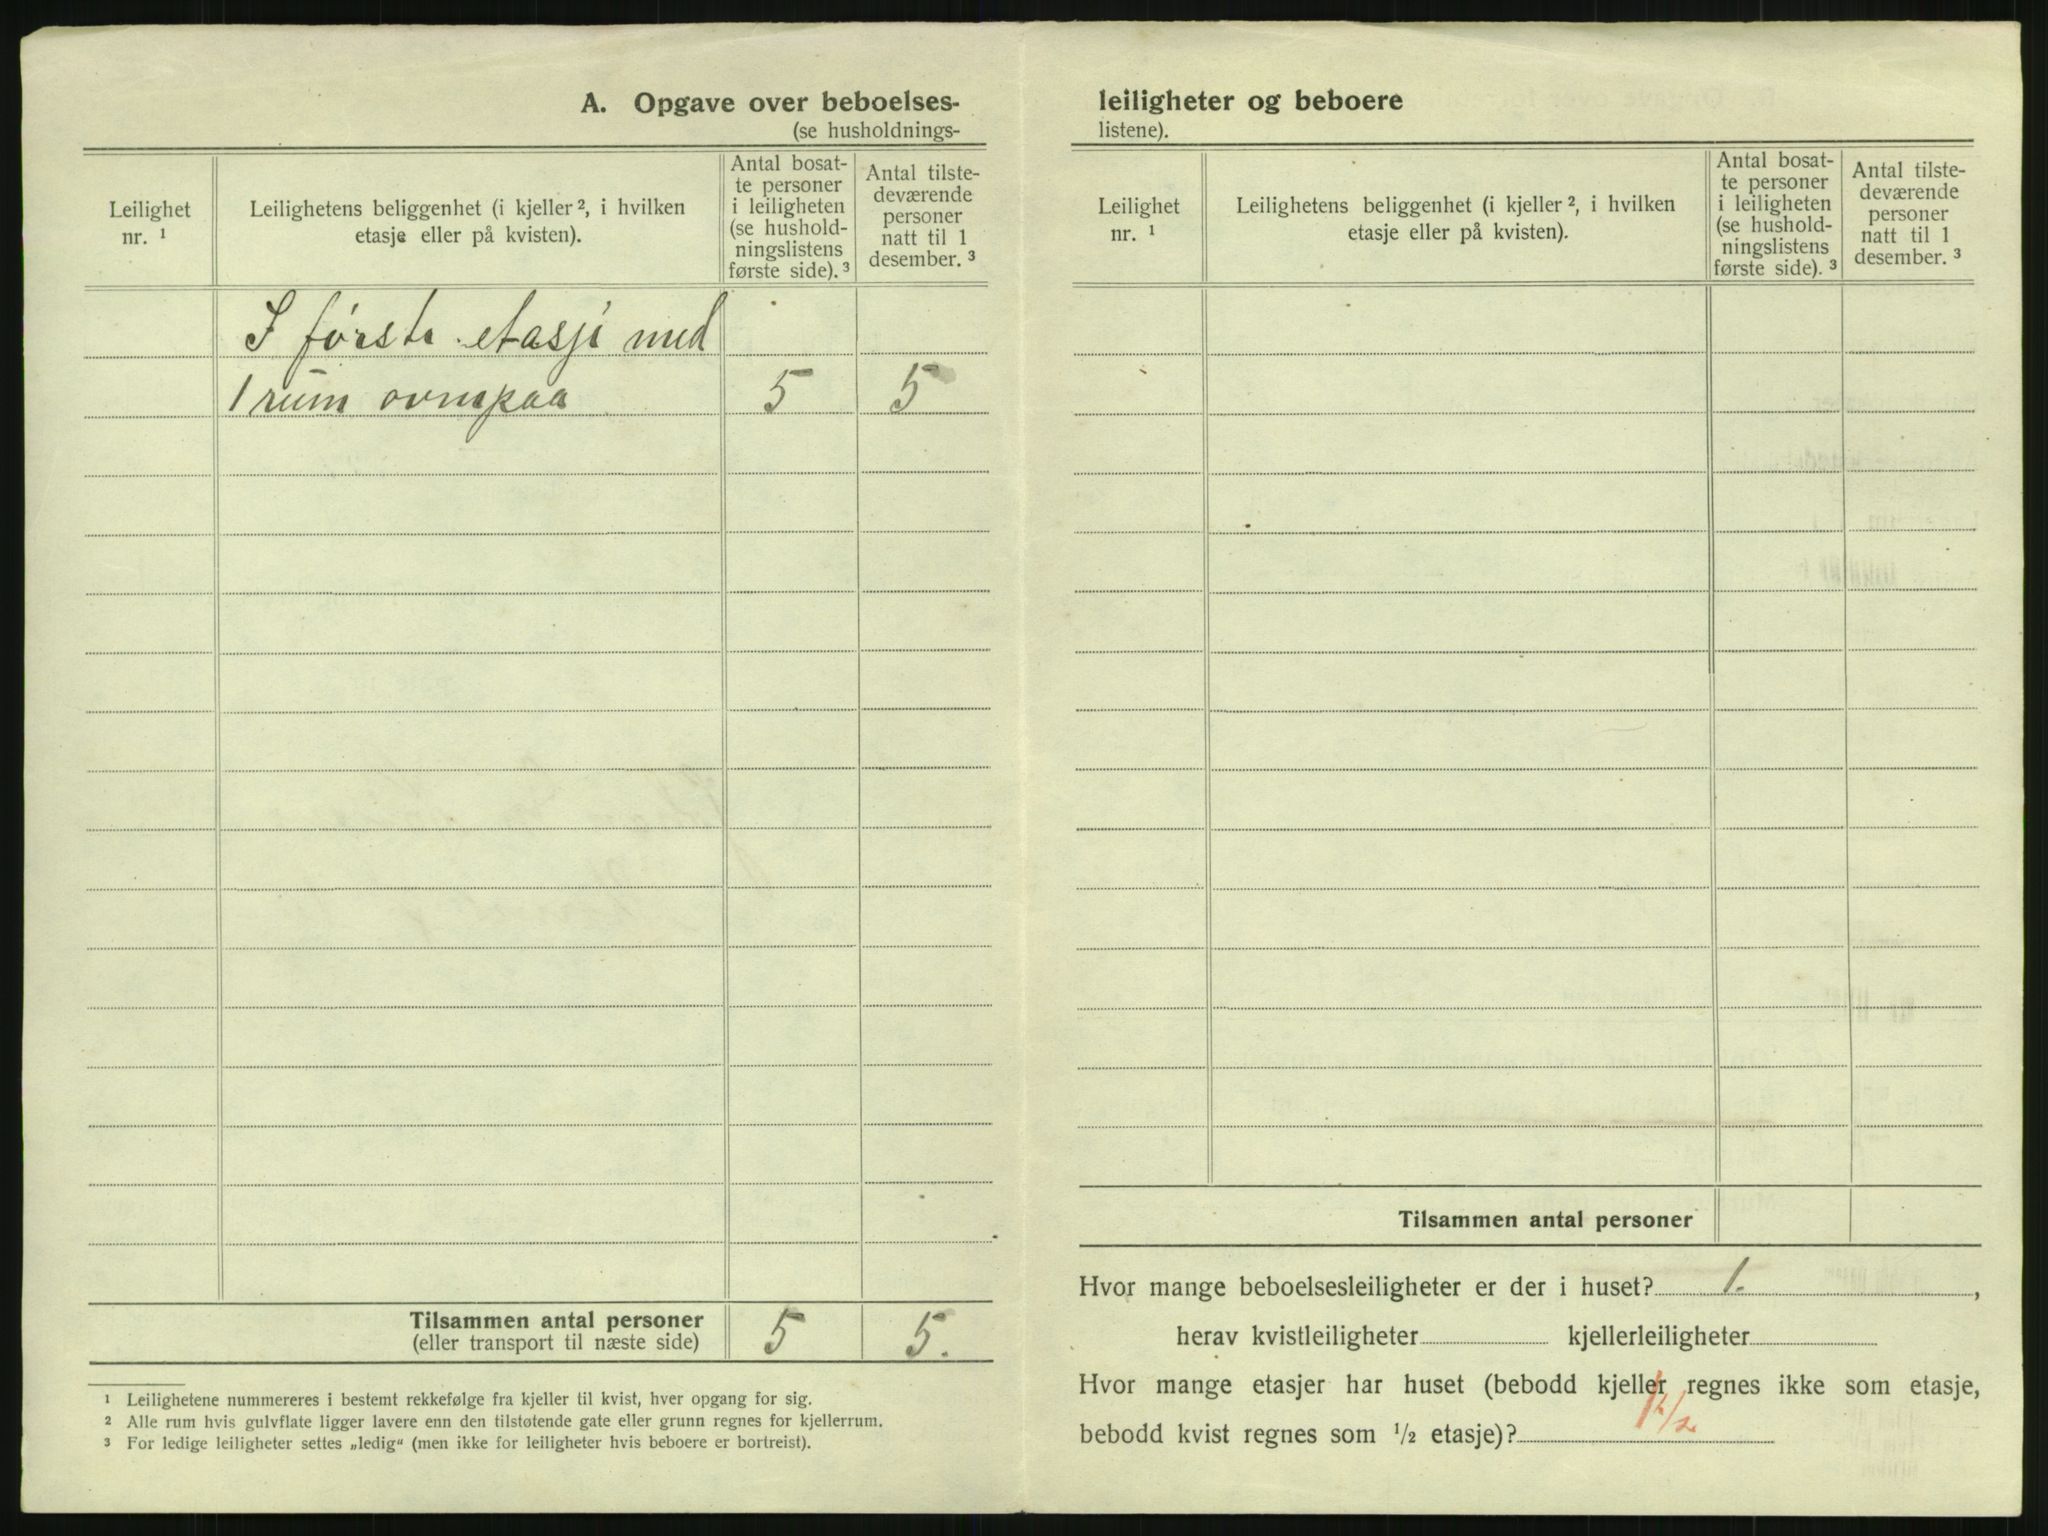 A. Opgave over beboelses-
(se husholdnings-
Leilighet
nr. ¹
Leilighetens beliggenhet (i kjeller ², i hvilken
etasje eller på kvisten).
Antal bosat-
te personer
i leiligheten
(se hushold-
ningslistens
første side). ³
Antal tilste-
deværende
personer
natt til 1
desember. ³
I første etasje med
1 rum ovnpaa 5 5
Tilsammen antal personer 5 5.
(eller transport til næste side)
¹ Leilighetene nummereres i bestemt rekkefølge fra kjeller til kvist, hver opgang for sig.
² Alle rum hvis gulvflate ligger lavere enn den tilstøtende gate eller grunn regnes for kjellerrum.
³ For ledige leiligheter settes „ledig“ (men ikke for leiligheter hvis beboere er bortreist).
leiligheter og beboere
listene).
Leilighet
nr. ¹
Leilighetens beliggenhet (i kjeller ², i hvilken
etasje eller på kvisten).
Antal bosat-
te personer
i leiligheten
(se hushold-
ningslistens
første side). ³
Antal tilste-
deværende
personer
natt til 1
desember. ³
Tilsammen antal personer
Hvor mange beboelsesleiligheter er der i huset? 1. ,
herav kvistleiligheter kjellerleiligheter
Hvor mange etasjer har huset (bebodd kjeller regnes ikke som etasje,
bebodd kvist regnes som ½ etasje)? 1 1/2